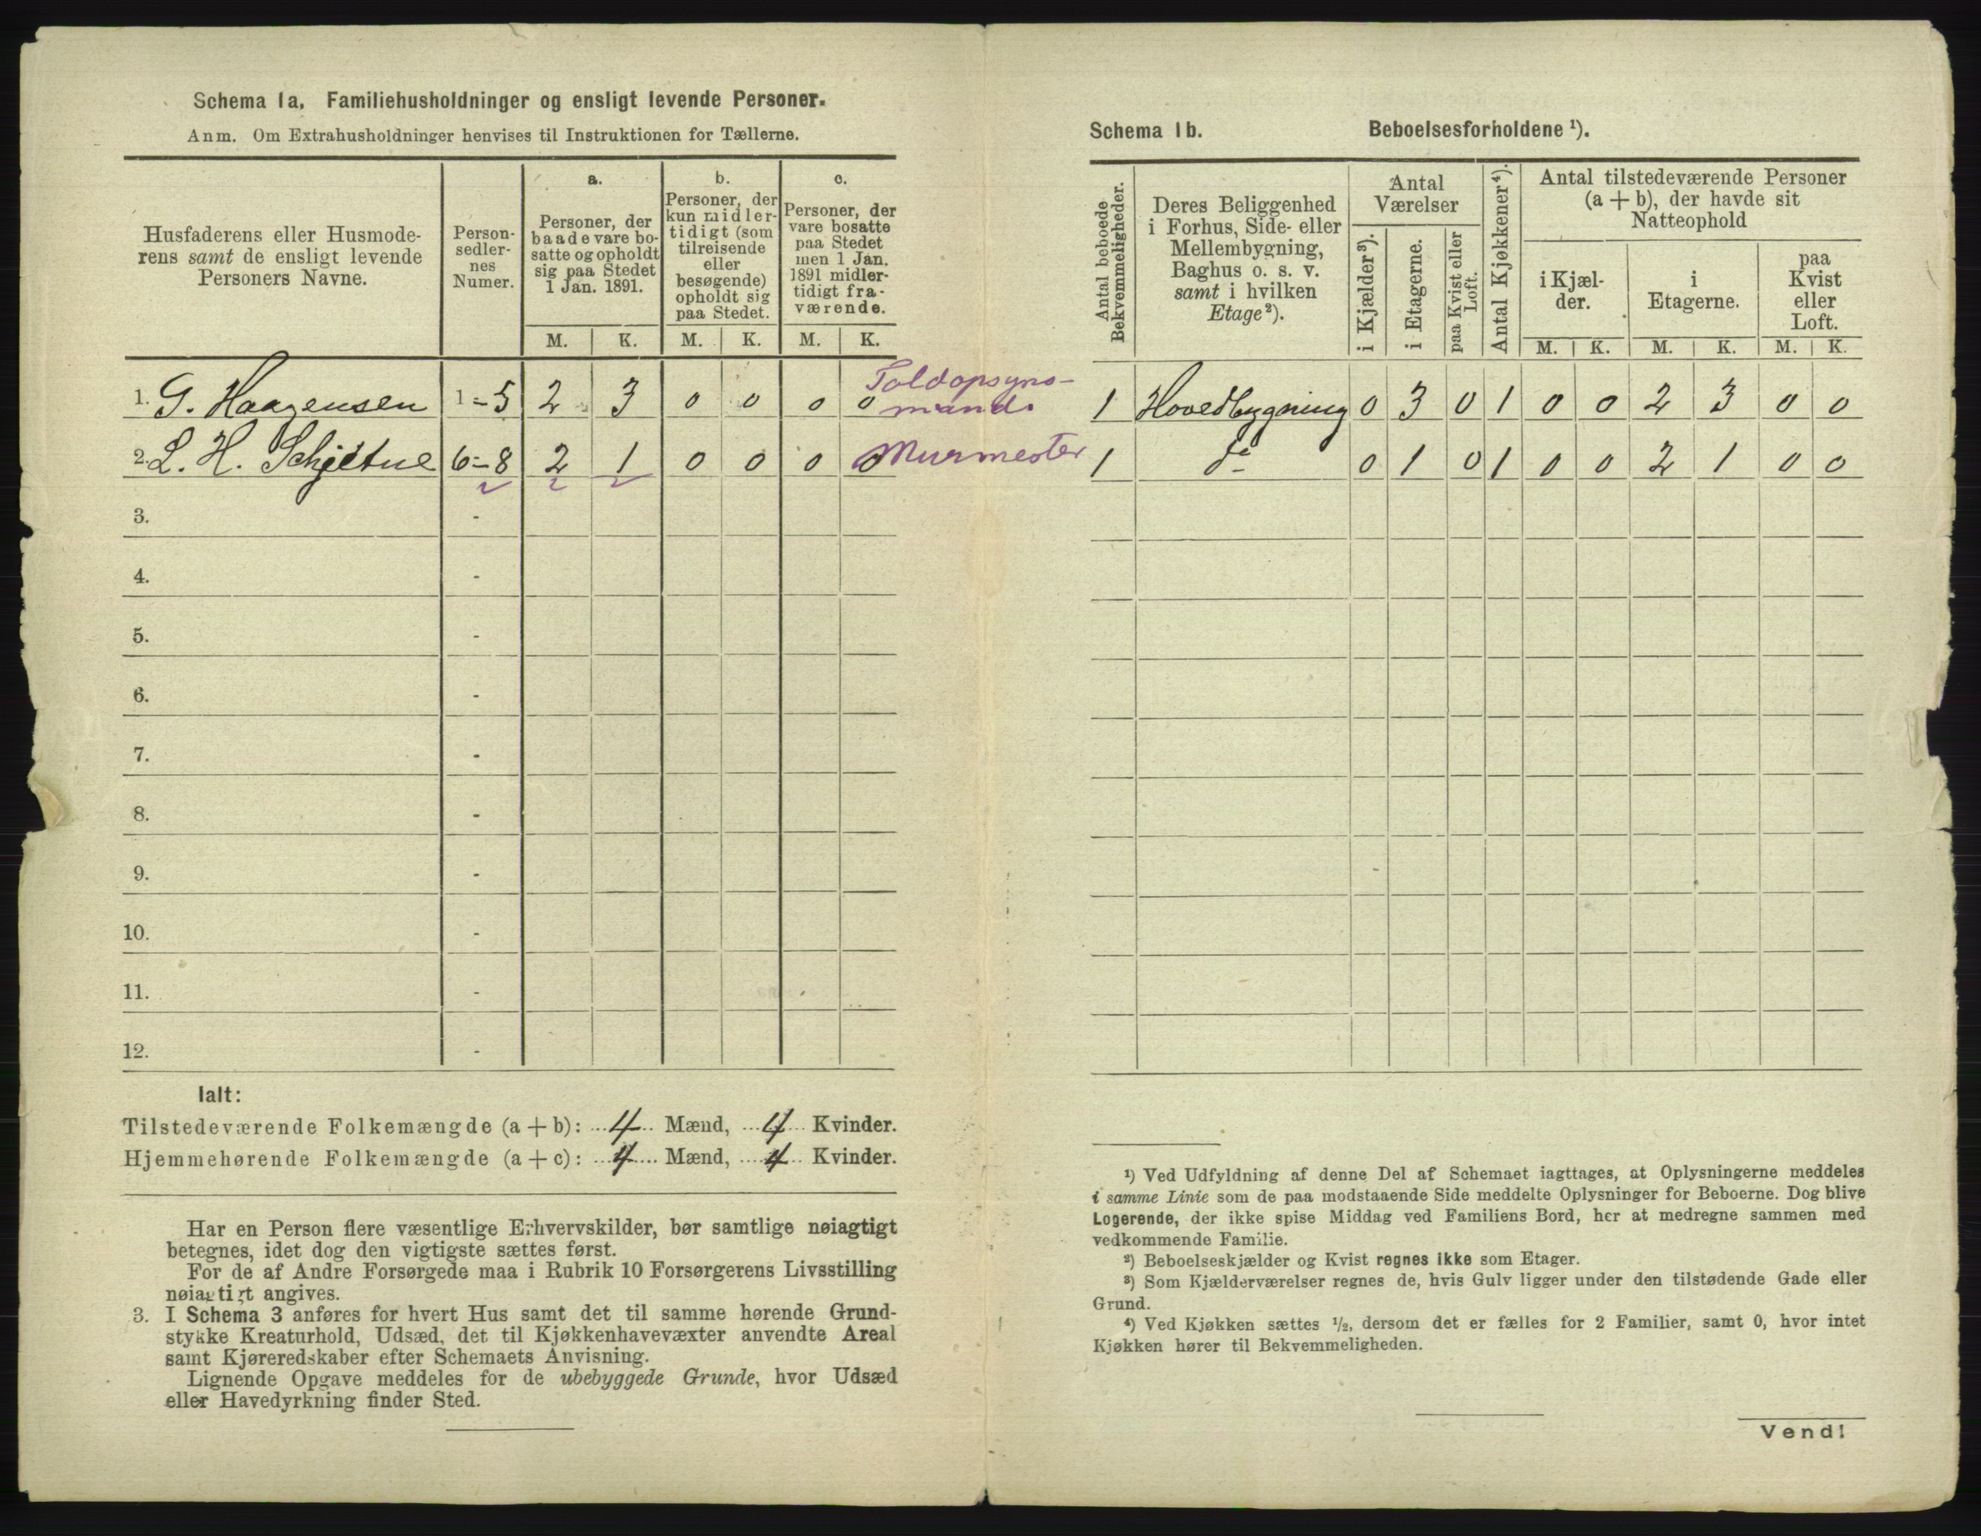 Schema 1a. Familiehusholdninger og ensligt levende Personer.
Anm. Om Extrahusholdninger henvises til Instruktionen for Tællerne.
Husfaderens eller Husmode-
rens samt de ensligt levende
Personers Navne.
Person-
sedler-
nes
Numer.
a.
Personer, der
baade vare bo-
satte og opholdt
sig paa Stedet
1 Jan. 1891.
b.
Personer, der
kun midler-
tidigt (som
tilreisende
eller
besøgende)
opholdt sig
paa Stedet.
c.
Personer, der
vare bosatte
paa Stedet
men 1 Jan.
1891 midler-
tidigt fra-
værende.
M. K. M. K. M. K.
1. G. Haagensen 1 - 5 2 3 0 0 0 0 Toldopsyns-
mand.
2. L. H. Schjetne 6 - 8 2 1 0 0 0 0 Murmester
3. -
4. -
5. -
6. -
7. -
8. -
9. -
10. -
11. -
12. -
Ialt:
Tilstedeværende Folkemængde (a + b): 4 Mænd, 4 Kvinder.
Hjemmehørende Folkemængde (a + c): 4 Mænd, 4 Kvinder.
Har en Person flere væsentlige Erhvervskilder, bør samtlige nøiagtigt
betegnes, idet dog den vigtigste sættes først.
For de af Andre Forsørgede maa i Rubrik 10 Forsørgerens Livsstilling
nøiagtigt angives.
3. I Schema 3 anføres for hvert Hus samt det til samme hørende Grund-
stykke Kreaturhold, Udsæd, det til Kjøkkenhavevæxter anvendte Areal
samt Kjøreredskaber efter Schemaets Anvisning.
Lignende Opgave meddeles for de ubebyggede Grunde, hvor Udsæd
eller Havedyrkning finder Sted.
Schema 1b. Beboelsesforholdene ¹).
Antal beboede
Bekvemmeligheder.
Deres Beliggenhed
i Forhus, Side- eller
Mellembygning,
Baghus o. s. v.
samt i hvilken
Etage²).
Antal
Værelser
i Kjælder³).
i Etagerne.
paa Kvist eller
Loft.
Antal Kjøkkener⁴).
Antal tilstedeværende Personer
(a + b), der havde sit
Natteophold
i Kjæl-
der.
i
Etagerne.
paa
Kvist
eller
Loft.
M. K. M. K. M. K.
1 Hovedbygning 0 3 0 1 0 0 2 3 0 0
1 do 0 1 0 1 0 0 2 1 0 0
¹) Ved Udfyldning af denne Del af Schemaet iagttages, at Oplysningerne meddeles
i samme Linie som de paa modstaaende Side meddelte Oplysninger for Beboerne. Dog blive
Logerende, der ikke spise Middag ved Familiens Bord, her at medregne sammen med
vedkommende Familie.
²) Beboelseskjælder og Kvist regnes ikke som Etager.
³) Som Kjælderværelser regnes de, hvis Gulv ligger under den tilstødende Gade eller
Grund.
⁴) Ved Kjøkken sættes ½, dersom det er fælles for 2 Familier, samt 0, hvor intet
Kjøkken hører til Bekvemmeligheden.
Vend!